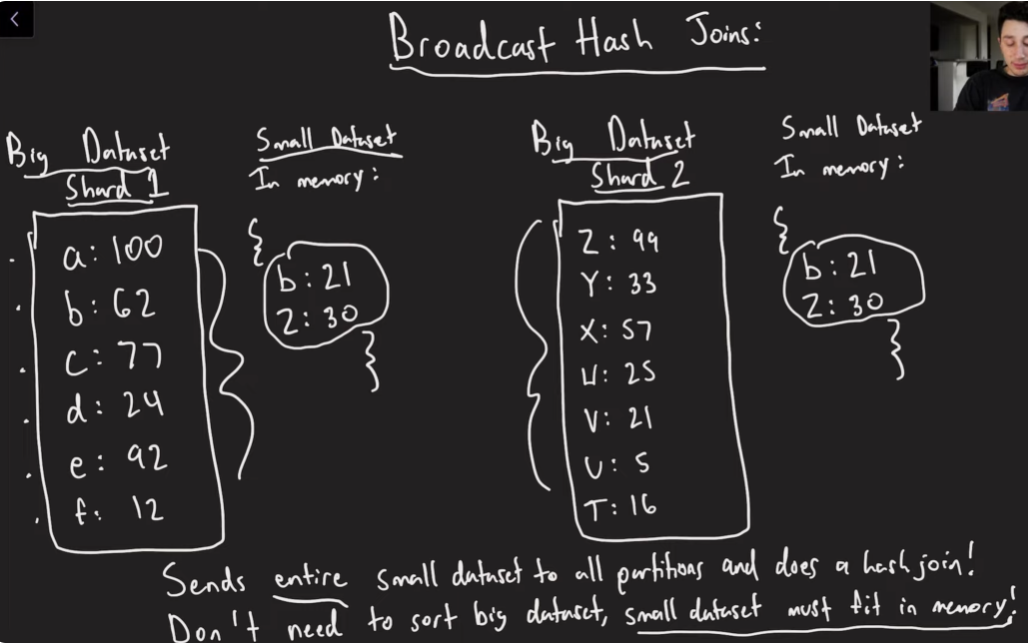 Broadcast Hash Joins:
Big Dataset
Shard 1
a: 100
b: 62
c: 77
d: 24
e: 92
f: 12
Small Dataset
In memory:
{
b: 21
Z: 30
}
Big Dataset
Shard 2
Z: 99
Y: 33
X: 57
W: 25
V: 21
U: 5
T: 16
Small Dataset
In memory:
{
b: 21
Z: 30
}
Sends entire small dataset to all partitions and does a hash join!
Don't need to sort big dataset, small dataset must fit in memory!